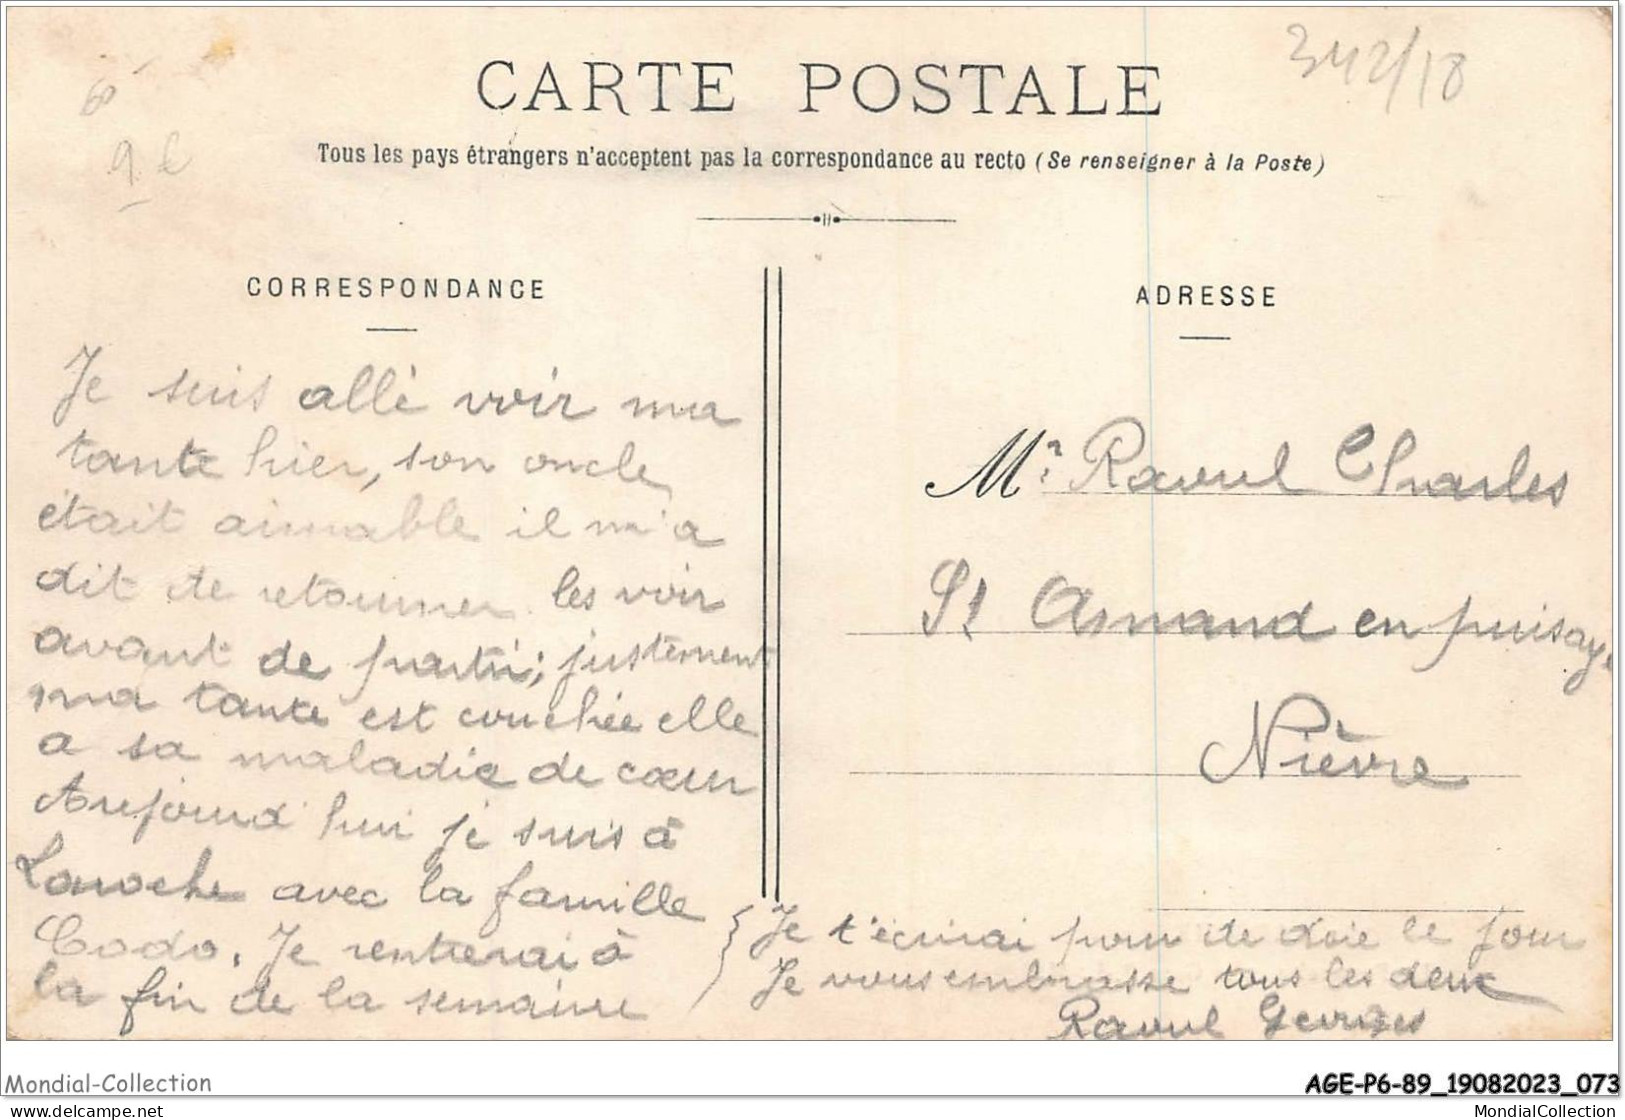 342/18
9 €
CARTE POSTALE
Tous les pays étrangers n'acceptent pas la correspondance au recto (Se renseigner à la Poste)
CORRESPONDANCE
Je suis allé voir ma
tante hier, son oncle
était aimable il m'a
dit de retourner les voir
avant de partir; justement
ma tante est couchée elle
a sa maladie de cœur
Aujourd'hui je suis à
Laroche avec la famille
Codo. Je rentrerai à
la fin de la semaine
ADRESSE
Mr. Raoul Charles
St Amand en puisaye
Nièvre
Je t'écrirai pour te doie le jour
Je vous embrasse tous les deux
Raoul Georges
Mondial-Collection
AGE-P6-89_19082023_073
delcampe.net
MondialCollection